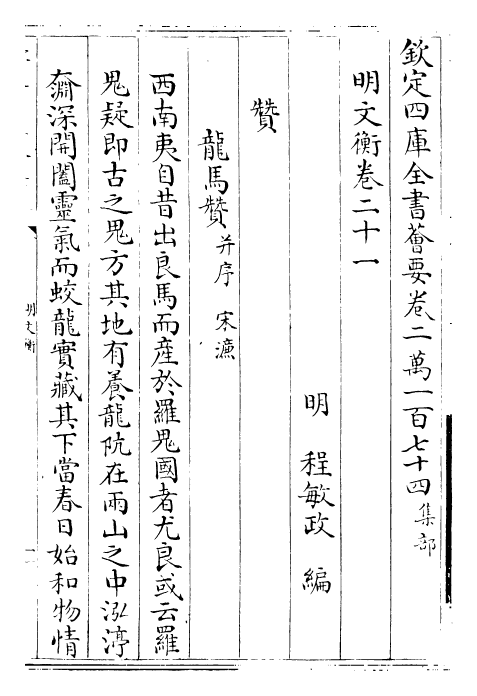 欽定四庫全書薈要卷二萬一百七十四 集部
明文衡卷二十一
明 程敏政 編
贊
龍馬贊 并序 宋濂
西南夷自昔出良馬而産於羅鬼國者尤良或云羅
鬼疑即古之鬼方其地有養龍阬在兩山之中泓渟
奫深開闔靈氣而蛟龍實藏其下當春日始和物情
明文衡